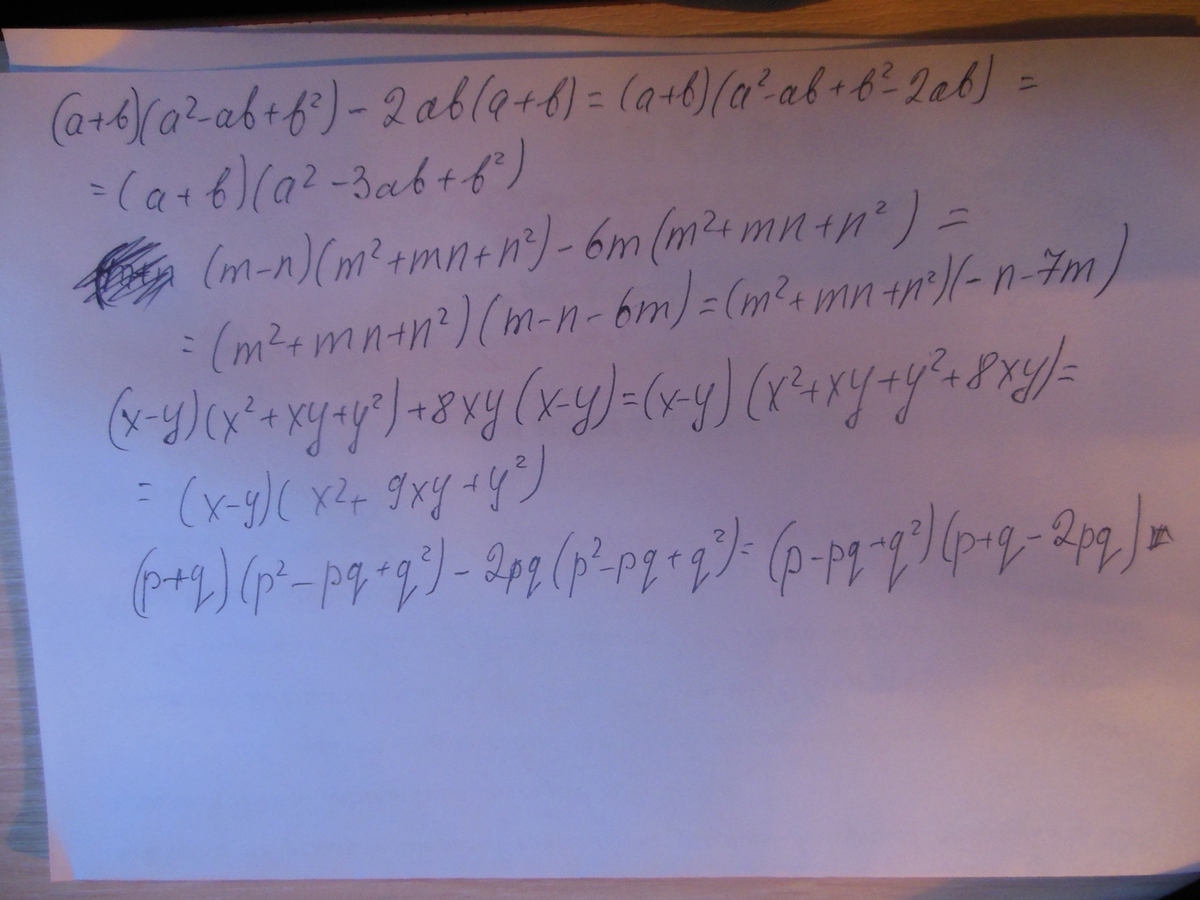 (a+b)(a²-ab+b²) - 2ab(a+b) = (a+b)(a²-ab+b²-2ab) =
= (a+b)(a²-3ab+b²)
(m-n)(m²+mn+n²) - 6m(m²+mn+n²) =
= (m²+mn+n²)(m-n-6m) = (m²+mn+n²)(-n-7m)
(x-y)(x²+xy+y²)+8xy(x-y)=(x-y)(x²+xy+y²+8xy)=
= (x-y)(x²+9xy+y²)
(p+q)(p²-pq+q²) - 2pq(p²-pq+q²) = (p-pq+q²)(p+q-2pq)